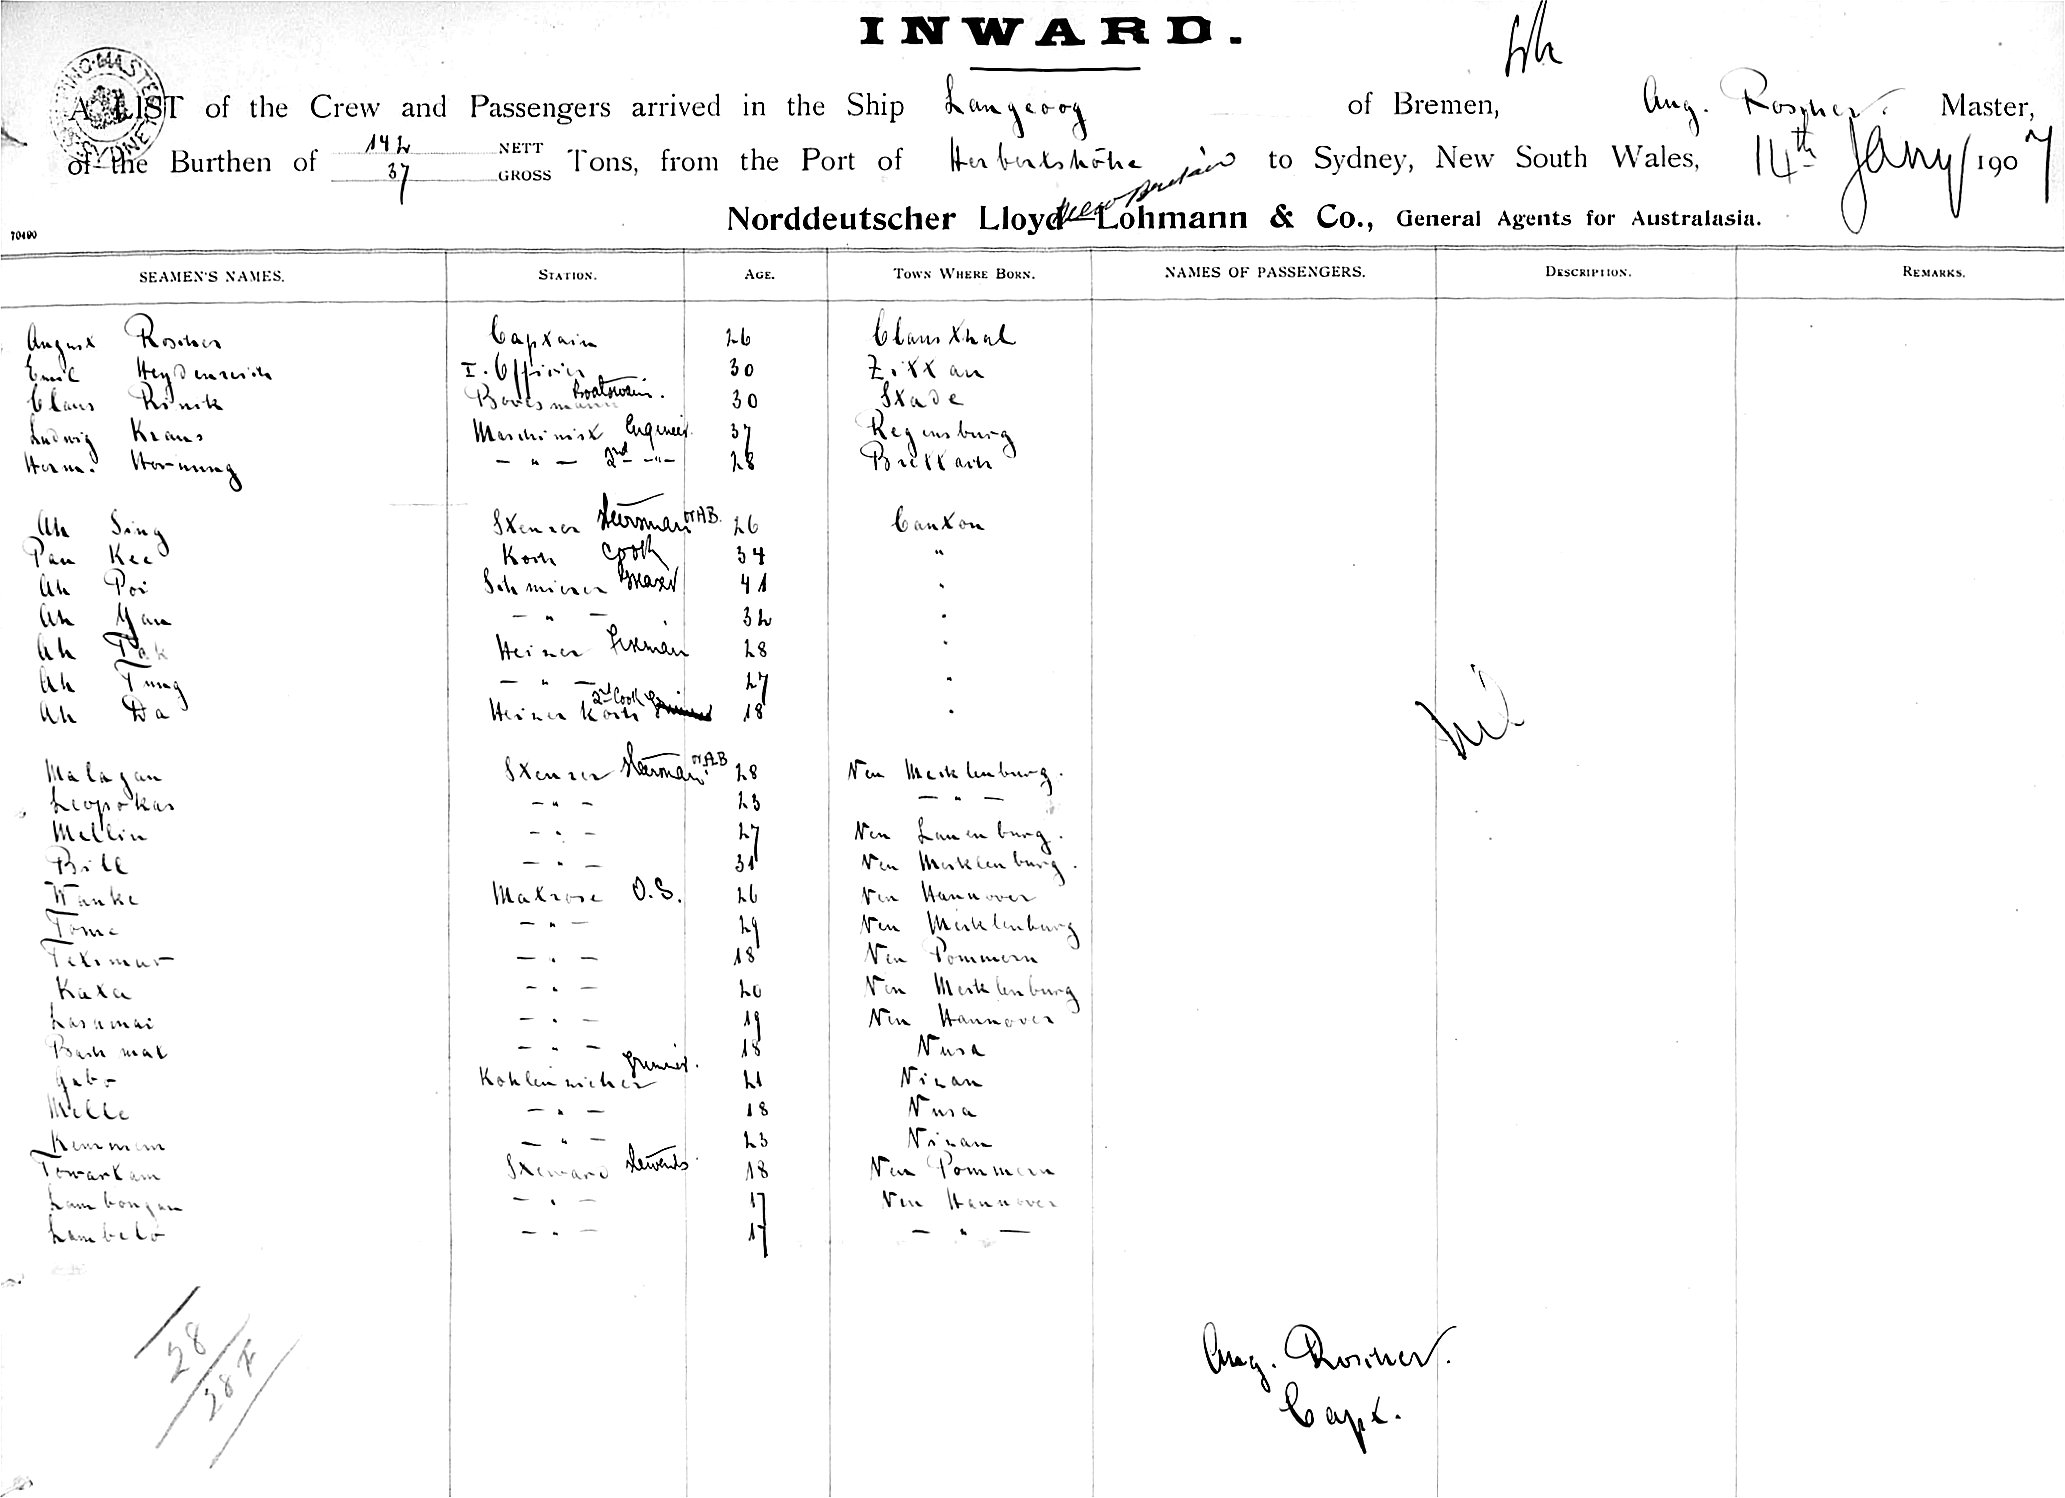 INWARD.
A LIST of the Crew and Passengers arrived in the Ship Langeoog of Bremen, Aug. Roscher. Master,
of the Burthen of 142 NETT 37 GROSS Tons, from the Port of Herbertshöhe New Britain to Sydney, New South Wales, 14th Jany 1907
Norddeutscher Lloyd Lohmann & Co., General Agents for Australasia.
70490
SEAMEN'S NAMES. STATION. AGE. TOWN WHERE BORN. NAMES OF PASSENGERS. DESCRIPTION. REMARKS.
August Roscher Captain 26 Clausthal
Emil Heydenreich I. Officier 30 Zittau
Claus Rinck Bootsmann Boatswain. 30 Stade
Ludwig Kraus Maschinist Engineer. 37 Regensburg
Herm. Hornung — " — 2nd — " — 28 Brettach
Ah Sing Steurer Steersman or AB. 26 Canton
Pan Kee Koch Cook 34 "
Ah Poi Schmierer Greaser 41 "
Ah Yan — " — 32 "
Ah Pak Heizer Fireman 28 "
Ah Tung — " — 27 "
Ah Da Heizer Koch 2nd Cook 18 "
Malagan Steurer Steersman or AB 28 Neu Mecklenburg.
Leopokas — " — 23 — " —
Mellin — " — 27 Neu Lauenburg.
Bill — " — 31 Neu Mecklenburg.
Wanke Matrose O.S. 26 Neu Hannover
Tome — " — 29 Neu Mecklenburg
Tetimar — " — 18 Neu Pommern
Kata — " — 20 Neu Mecklenburg
Lasumai — " — 19 Neu Hannover
Bachmal — " — 18 Nusa
Gabo Kohlenzieher Trimmer. 21 Nizan
Mille — " — 18 Nusa
Kemmem — " — 23 Nizan
Towartam Steward Stewards. 18 Neu Pommern
Lambongan — " — 17 Neu Hannover
Lambelo — " — 17 — " —
nil
28
28
Aug. Roscher.
Capt.